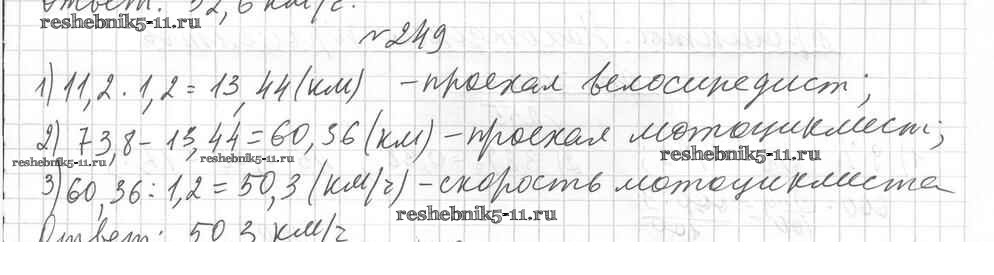 Ответ: 52,6 км/ч.
reshebnik5-11.ru
№249
1) 11,2 · 1,2 = 13,44 (км) – проехал велосипедист;
2) 73,8 – 13,44 = 60,36 (км) – проехал мотоциклист;
reshebnik5-11.ru reshebnik5-11.ru reshebnik5-11.ru
3) 60,36 : 1,2 = 50,3 (км/ч) – скорость мотоциклиста
reshebnik5-11.ru
Ответ: 50,3 км/ч